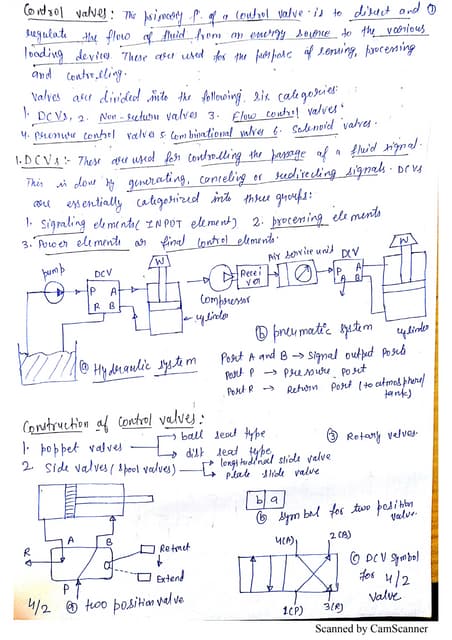 Control valves: The primary P. of a control valve is to direct and ①
regulate the flow of fluid from an energy source to the various
loading devices. These are used for the purpose of sensing, processing
and controlling.
Valves are divided into the following six categories:
1. DCVs, 2. Non-return valves 3. Flow control valves
4. Pressure control valves 5. Combinational valves 6. Solenoid valves.
1. DCVs:- These are used for controlling the passage of a fluid signal.
This is done by generating, canceling or redirecting signals. DCVs
are essentially categorized into three groups:
1. Signaling elements (INPUT element) 2. processing elements
3. Power elements or final control elements.
pump
DCV
P A
R B
W
cylinder
ⓐ Hydraulic system
Compressor
Recei
ver
Air service unit
DCV
P A
A B
W
cylinder
ⓑ pneumatic system
Port A and B → Signal output Ports
Port P → Pressure Port
Port R → Return Port (to atmosphere/
tank)
Construction of control valves:
1. poppet valves
ball seat type
disk seat type
③ Rotary valves.
2 Side valves (Spool valves)
longitudinal slide valve
plate slide valve
A B
R
P
Retract
Extend
4/2 ⓐ two position valve
b a
ⓑ Symbol for two position
valve.
4(A) 2(B)
1(P) 3(R)
ⓒ DCV Symbol
for 4/2
valve
Scanned by CamScanner